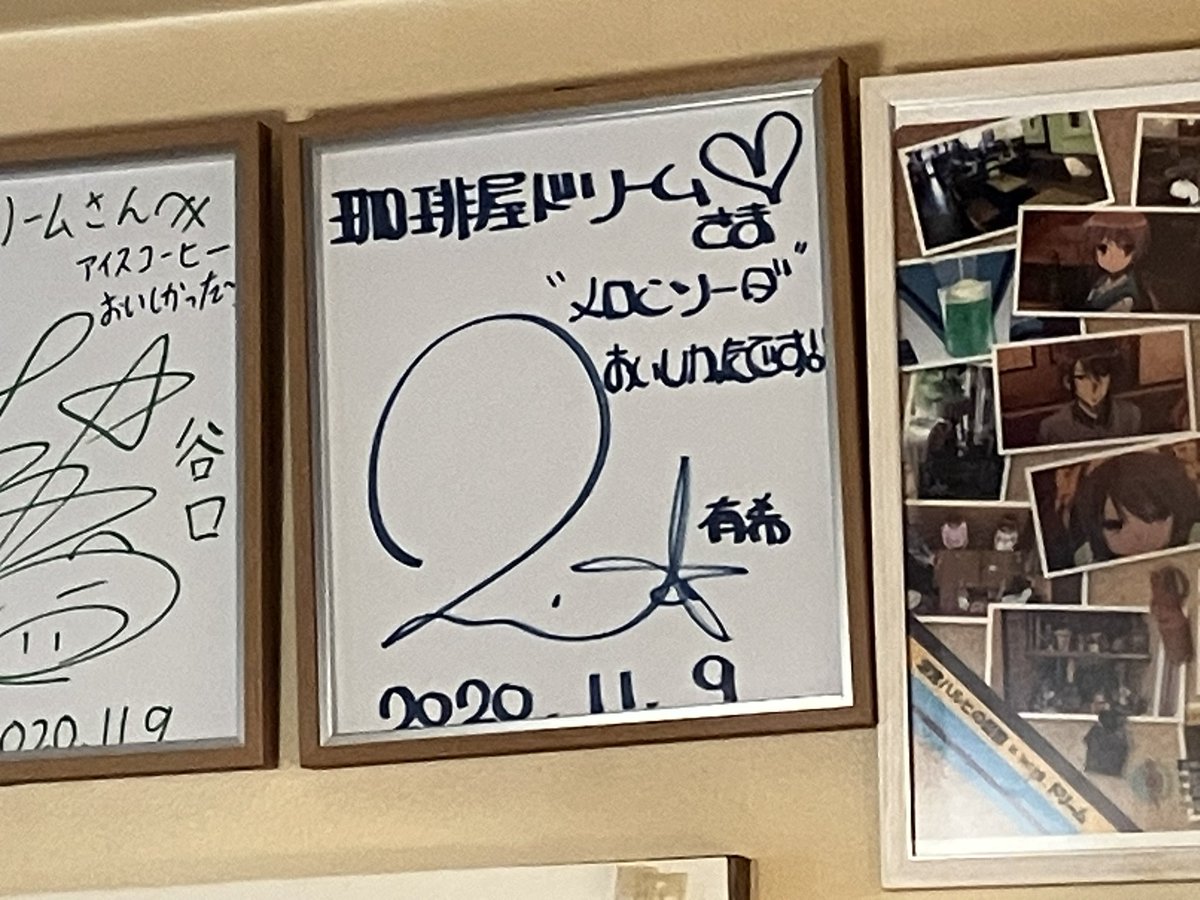 リームさんへ
アイスコーヒー
おいしかった〜
谷口
2020.11.9
珈琲屋ドリーム♡
さま
"メロンソーダ"
おいしかったです!!
有希
2020.11.9